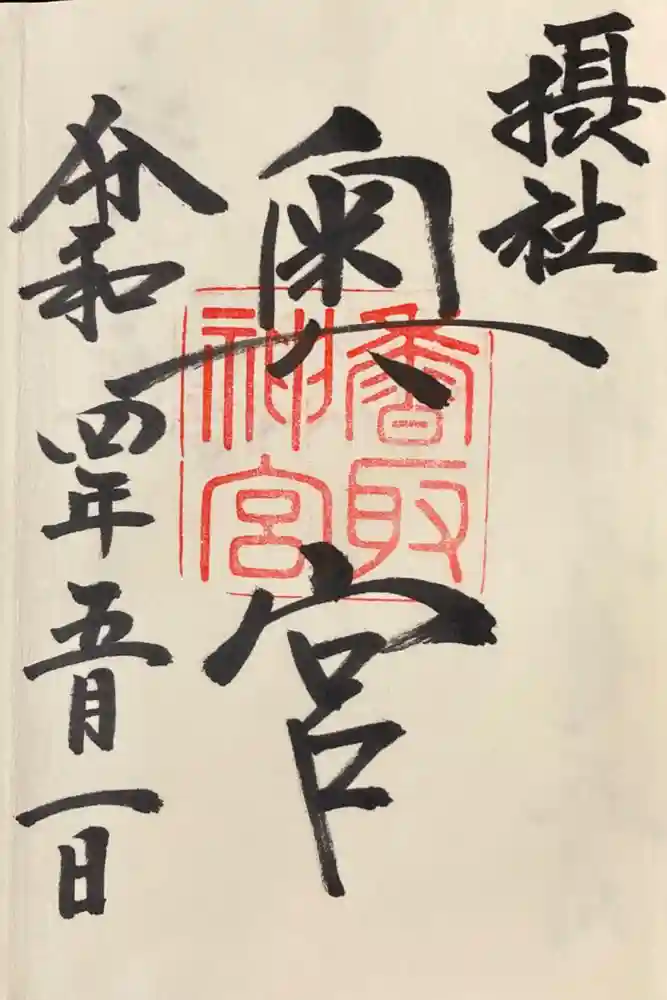 摂社
奥宮
香取
神宮
令和四年五月一日